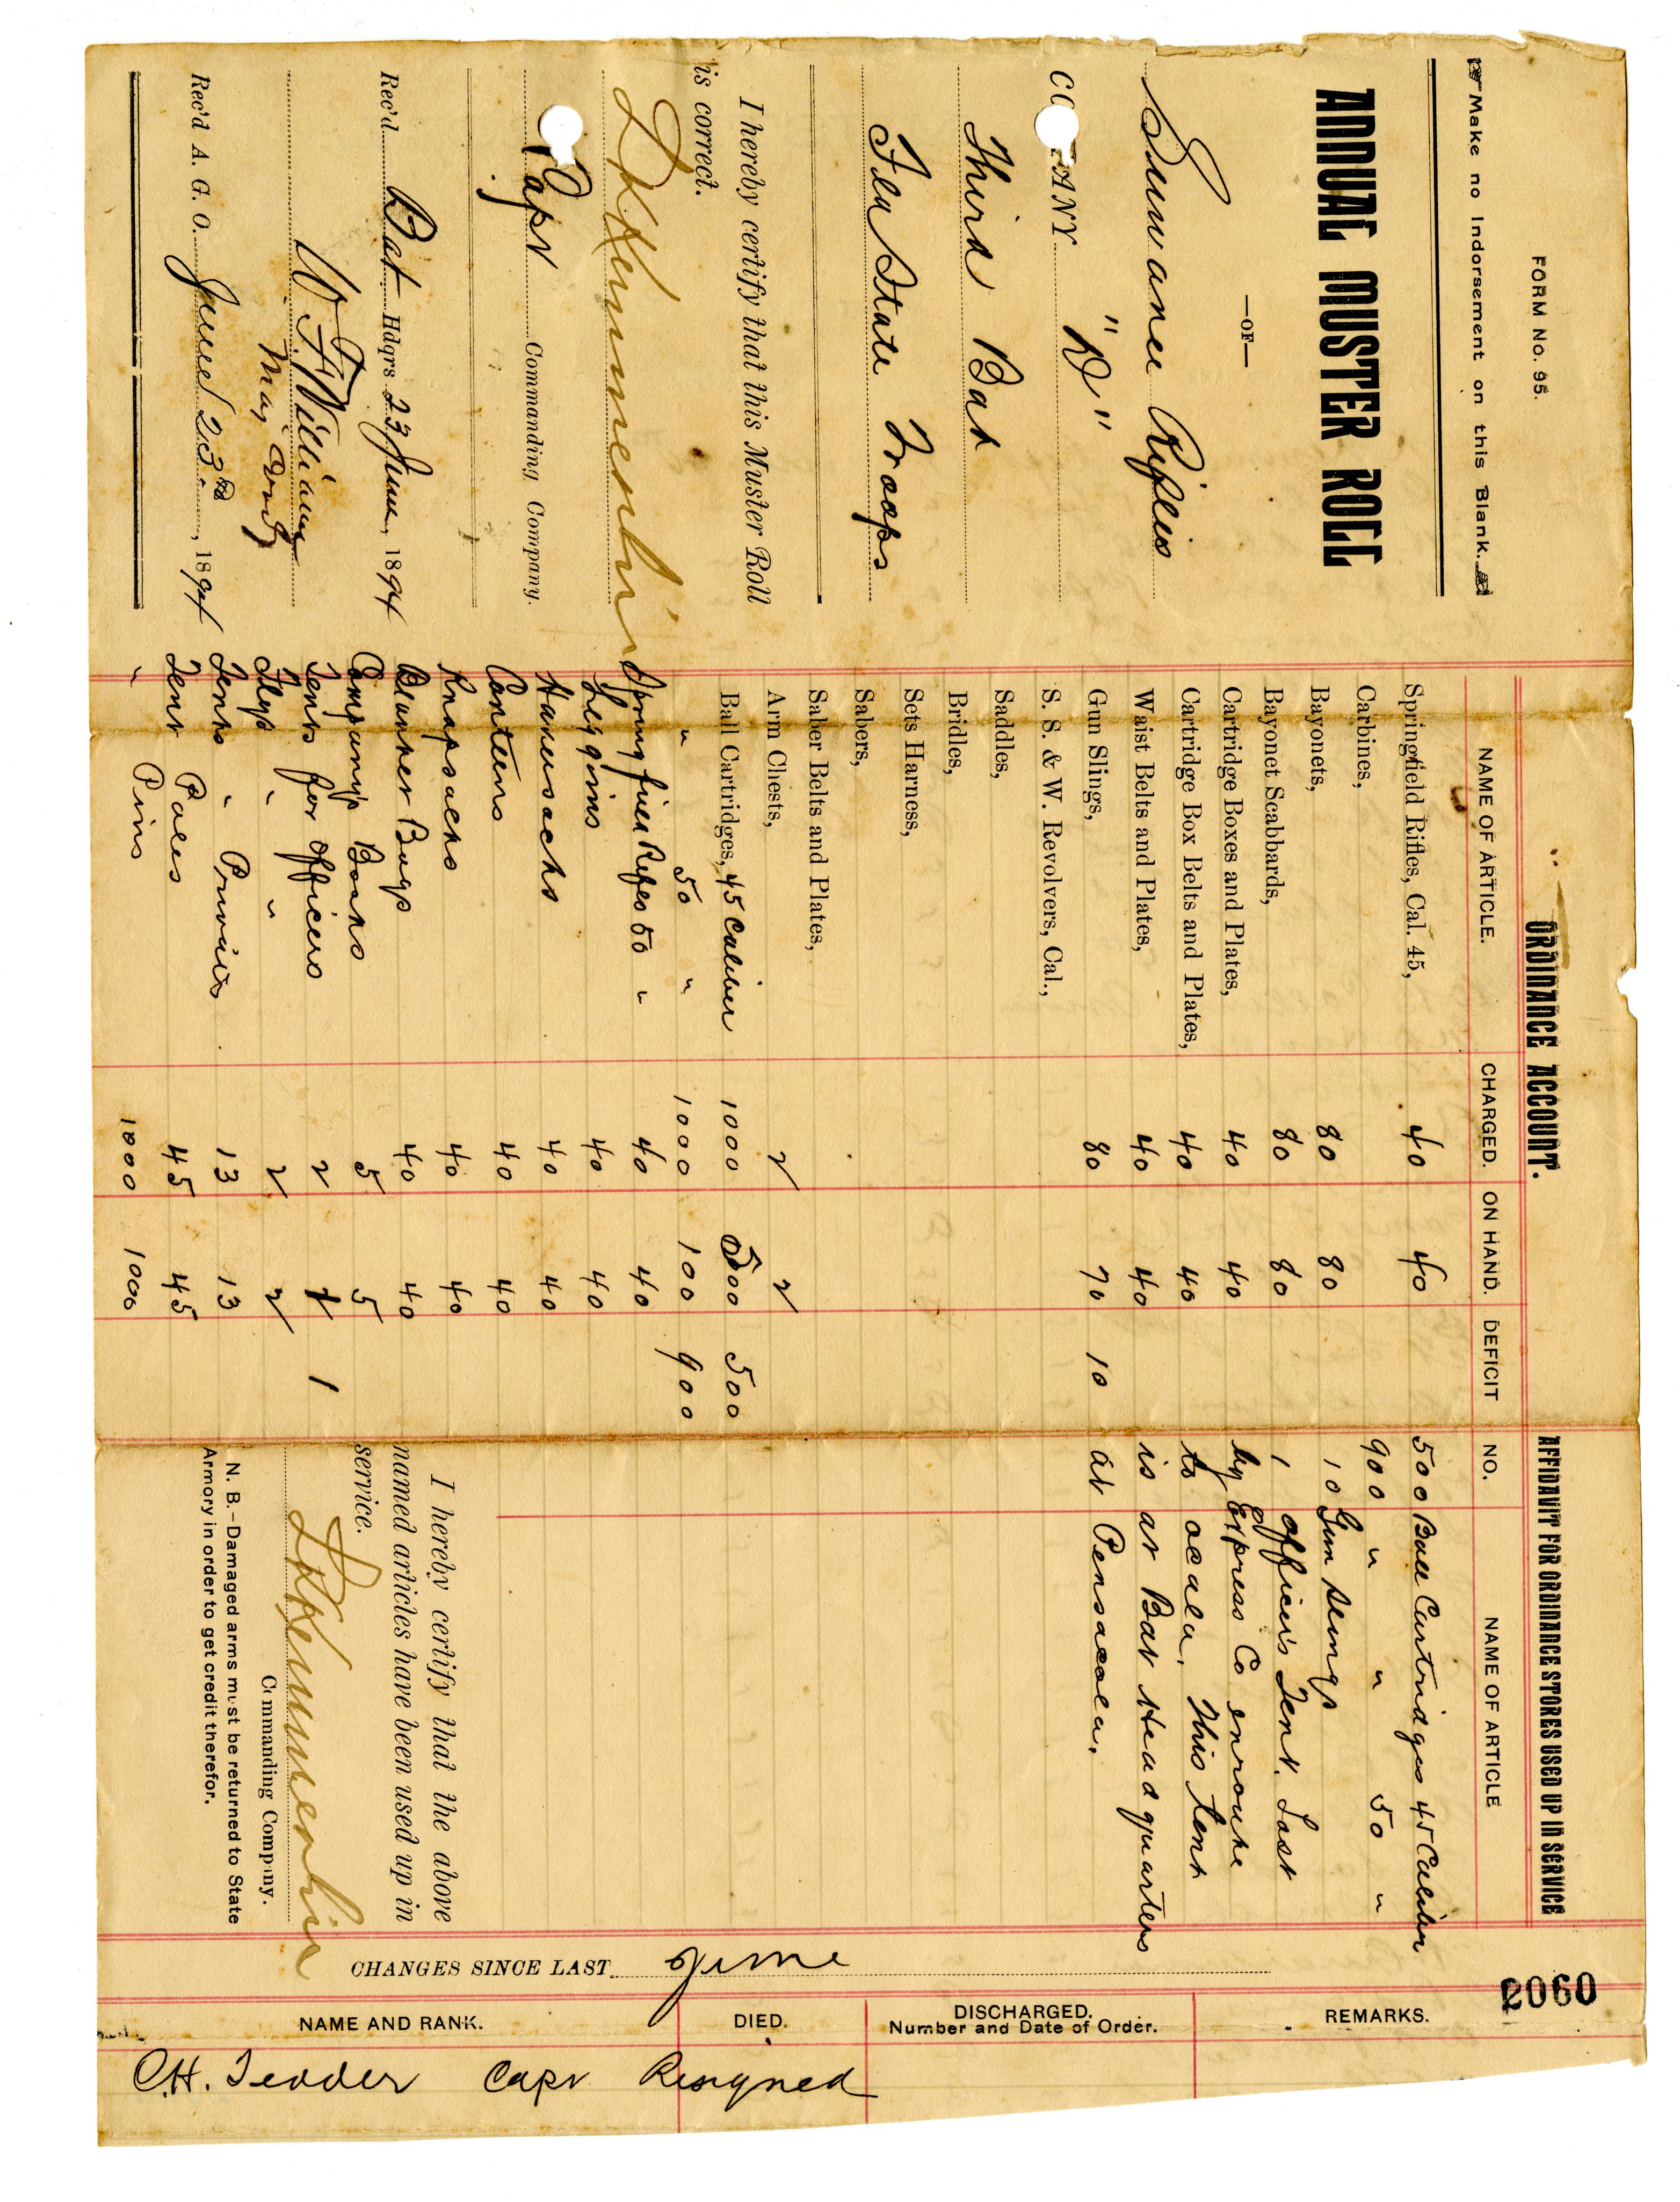 FORM No. 95.
Make no Indorsement on this Blank.
ANNUAL MUSTER ROLL
—OF—
Suwanee Rifles
COMPANY "D"
Third Bat
Fla State Troops
I hereby certify that this Muster Roll
is correct.
Capt
Commanding Company.
Rec'd Bat Hdqrs 23 June, 1894
W F Williams
Maj Comdg
Rec'd A. G. O. June 23rd, 1894
ORDINANCE ACCOUNT.
NAME OF ARTICLE. CHARGED. ON HAND. DEFICIT
Springfield Rifles, Cal. 45, 40 40
Carbines,
Bayonets, 80 80
Bayonet Scabbards, 80 80
Cartridge Boxes and Plates, 40 40
Cartridge Box Belts and Plates, 40 40
Waist Belts and Plates, 40 40
Gun Slings, 80 70 10
S. S. & W. Revolvers, Cal.,
Saddles,
Bridles,
Sets Harness,
Sabers,
Saber Belts and Plates,
Arm Chests, 2 2
Ball Cartridges, 45 Caliber 1000 500 500
" 50 " 1000 100 900
Springfield Rifles 50 " 40 40
Leggins 40 40
Haversacks 40 40
Canteens 40 40
Knapsacks 40 40
Blanket Bags 40 40
Company Books 5 5
Tents for officers 2 1 1
Flys " " 2 2
Tents " Privates 13 13
Tent Poles 45 45
" Pins 1000 1000
AFFIDAVIT FOR ORDINANCE STORES USED UP IN SERVICE
NO. NAME OF ARTICLE
500 Ball Cartridges 45 Caliber
900 " " 50 "
10 Gun Slings
1 officers Tent. Lost
by Express Co enroute
to ocala. This tent
is at Bat Head quarters
at Pensacola.
I hereby certify that the above
named articles have been used up in
service.
Commanding Company.
N. B.—Damaged arms must be returned to State
Armory in order to get credit therefor.
CHANGES SINCE LAST June
2060
NAME AND RANK. DIED. DISCHARGED. Number and Date of Order. REMARKS.
C.H. Tedder Capt Resigned